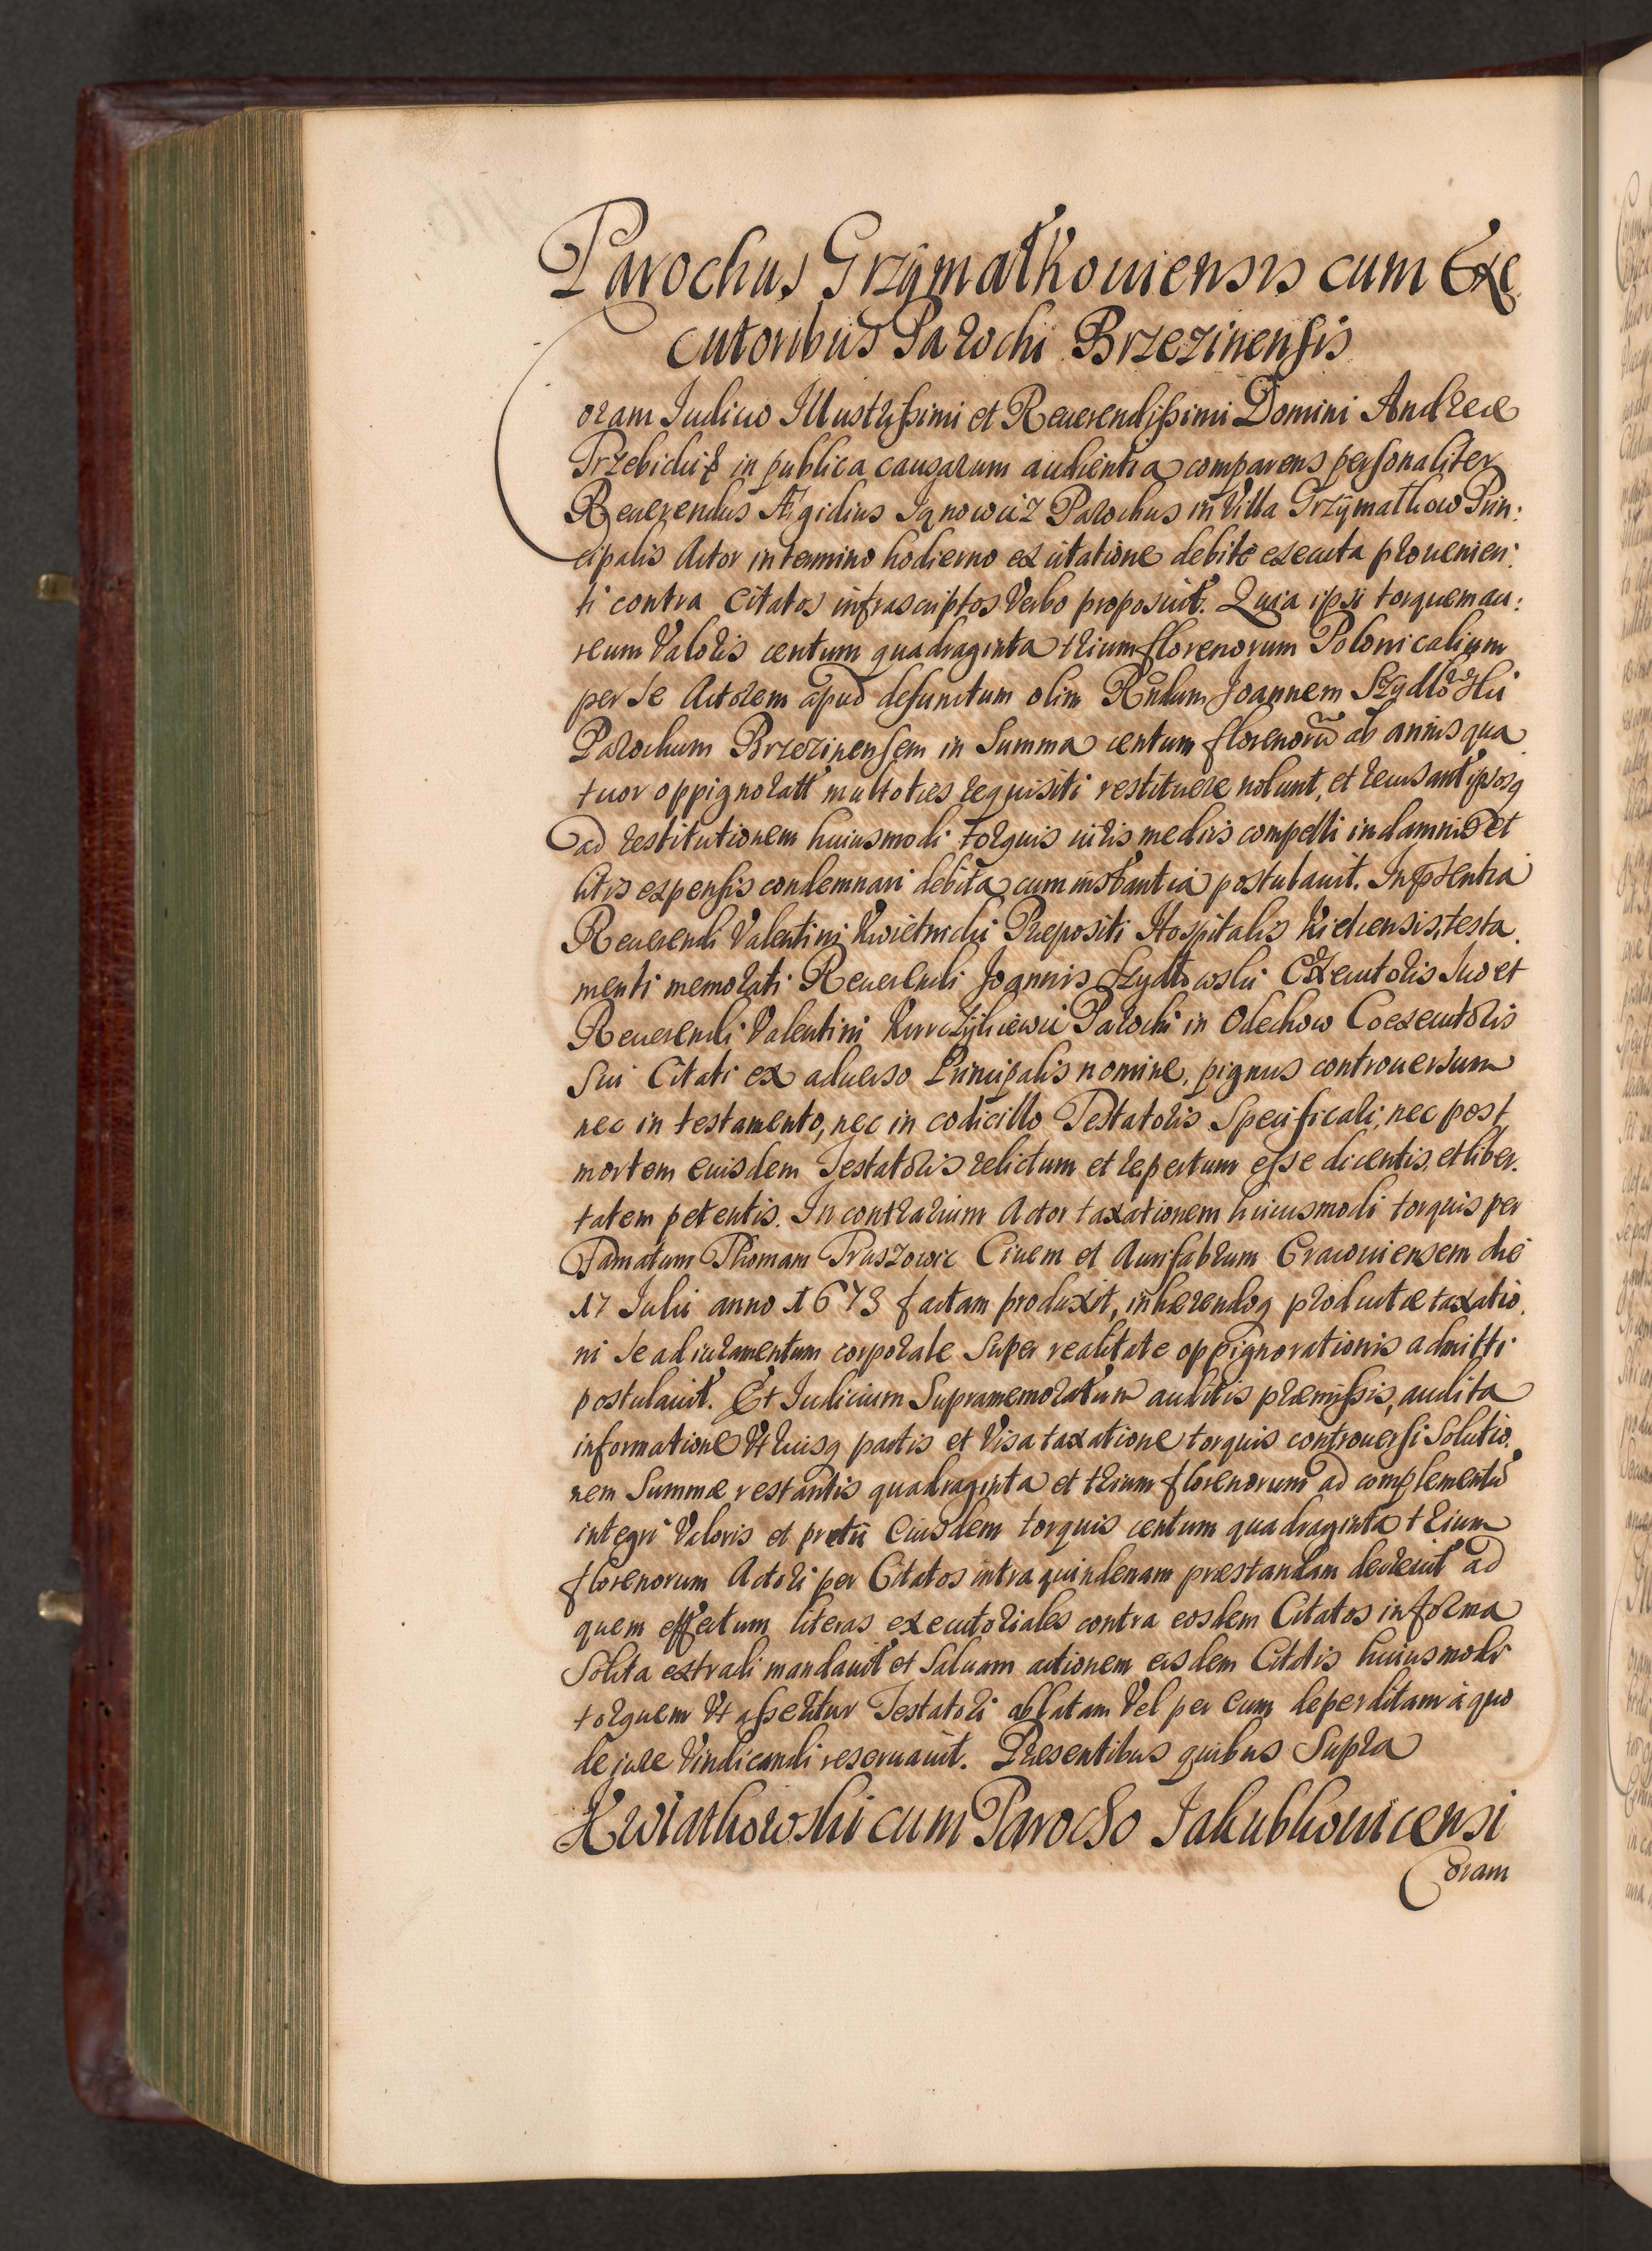 Parochus Grzÿmałkouiensis cum Exe
cutoribus Parochi Brzezinensis
Coram Iudicio Illustrissimi et Reuerendissimi Domini Andreæ
Trzebicki in publica causarum audientia comparens personaliter
Reuerendus Ægidius Ignowicz Parochus in Villa Grzÿmałkow Prin:
cipalis Actor in termino hodierno ex citatione debite executa prouenien:
ti contra Citatos infrascriptos Verbo proposuit. Quia ipsi torquem au:
reum Valoris centum quadraginta trium florenorum Polonicalium
per se Actorem apud defunctum olim Rñdum Joannem Szydło
Parochum Brzezinensem in Summa centum florenorũ ab annis qua
tuor oppignoratt multoties requisiti restituere nolunt, et recusant ipsosq
ad restitutionem huiusmodi torquis iuris mediis compelli in damnis et
litis expensis condemnari debita cum instantia postulauit. In pñtia
Reuerendi Valentini Kwietnicki Præpositi Hospitalis Kielcensis, testa
menti memorati Reuerendi Joannis Szydłowski Executoris Suo et
Reuerendi Valentini Parochi in Odechow Coexecutoris
Sui Citati ex aduerso Principalis nomine, pignus controuersum
nec in testamento, nec in codicillo Testatoris Specificati, nec post
mortem eiusdem Testatoris relictum et repertum esse dicentis, et liber.
tatem petentis. In contrarium Actor taxationem huiusmodi torquis per
Famatum Thomam Praszowic Ciuem et Aurifabrum Cracouiensem die
17 Julii anno 1673 factam produxit, inhærendoq productæ taxatio.
ni se ad iuramentum corporale Super realitate oppignorationis admitti
postulauit. Et Iudicium Supramemoratum auditis præmissis, audita
informatione Vtriusq partis et Visa taxatione torquis controuersi Solutio.
nem Summæ restantis quadraginta et trium florenorum ad complementũ
integri Valoris et pretii Eiusdem torquis centum quadraginta trium
florenorum Actori per Citatos intra quindenam præstandam decreuit ad
quem effectum literas executoriales contra eosdem Citatos in forma
Solita extradi mandauit et Saluam actionem eisdem Citatis huiusmodi
torquem Vt asseritur Testatori ablatam Vel per Eum deperditam à quo
de jure Vindicandi reseruauit. Præsentibus quibus Supra
Kwiatkowski cum Parocho Jakubkouicensi
Coram